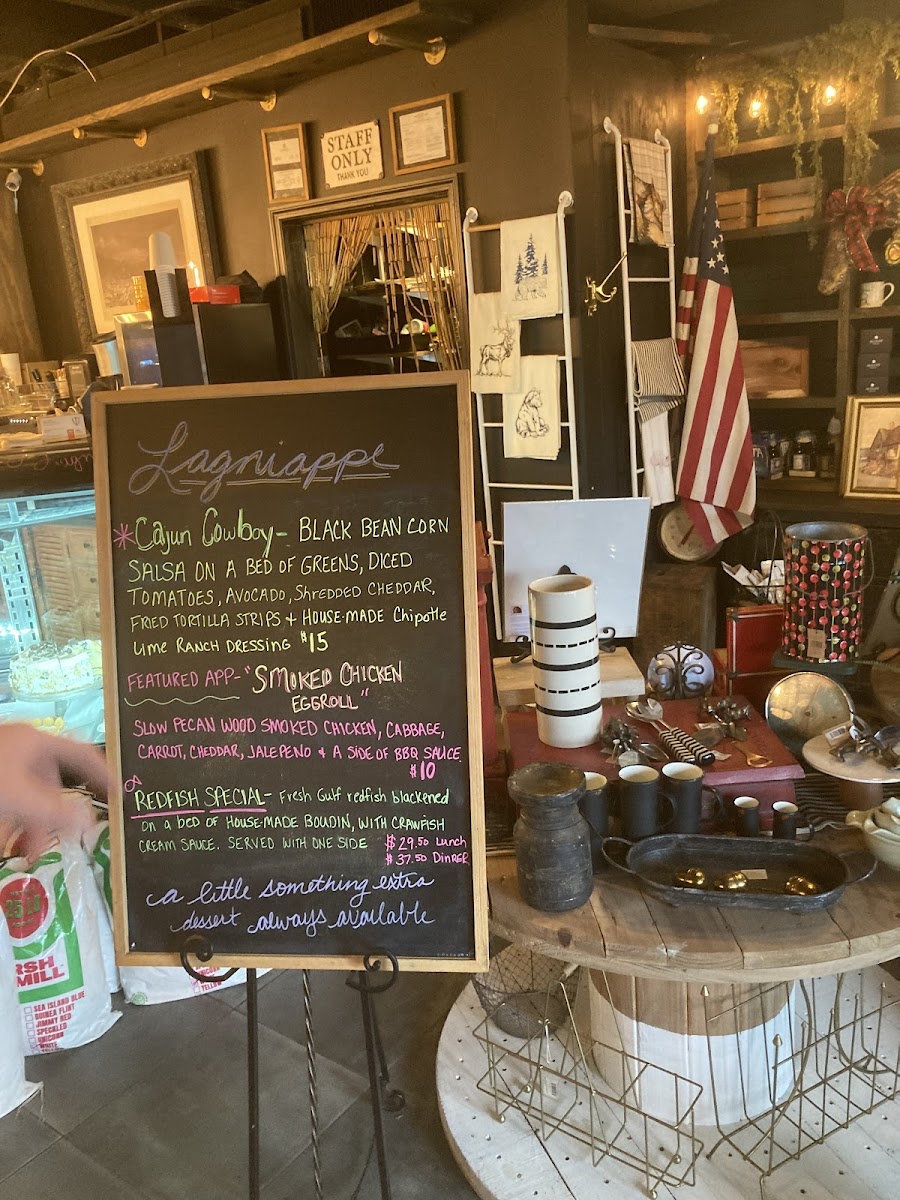 STAFF
ONLY
THANK YOU
Lagniappe
*Cajun Cowboy - BLACK BEAN CORN
SALSA ON A BED OF GREENS, DICED
TOMATOES, AVOCADO, SHREDDED CHEDDAR,
FRIED TORTILLA STRIPS + HOUSE-MADE Chipotle
Lime RANCH DRESSING $15
FEATURED APP- "SMOKED CHICKEN
EGGROLL"
SLOW PECAN WOOD SMOKED CHICKEN, CABBAGE,
CARROT, CHEDDAR, JALEPENO + A SIDE OF BBQ SAUCE
$10
REDFISH SPECIAL- Fresh Gulf redfish blackened
on a bed of HOUSE-MADE BOUDIN, WITH CRAWFISH
CREAM SAUCE. SERVED WITH ONE SIDE $29.50 Lunch
$37.50 DinneR
a little something extra
dessert always available
25 LB
RSH
MILL
SEA ISLAND BLUE
GUINEA FLINT
JIMMY RED
SPECKLED
UNICORN
WHITE
YELLOW